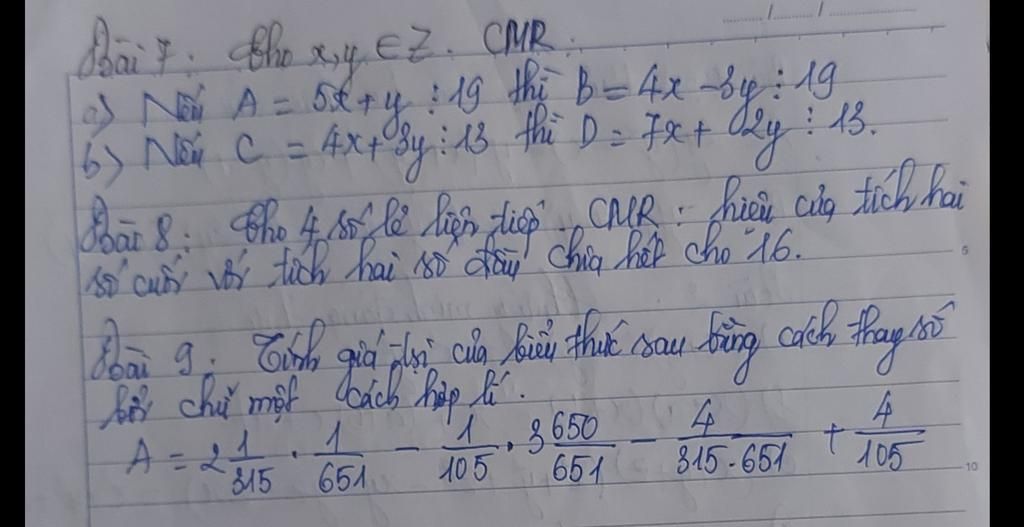 Bài 7: Cho x,y ∈ Z. CMR:
a) Nếu A = 5x+y ⋮ 19 thì B = 4x - 3y ⋮ 19
b) Nếu C = 4x+3y ⋮ 13 thì D = 7x + 2y ⋮ 13.
Bài 8: Cho 4 số lẻ liên tiếp. CMR: hiệu của tích hai
số cuối với tích hai số đầu chia hết cho 16.
Bài 9: Tính giá trị của biểu thức sau bằng cách thay số
bởi chữ một cách hợp lí.
A = 2 1/315 . 1/651 - 1/105 . 3 650/651 - 4/315.651 + 4/105